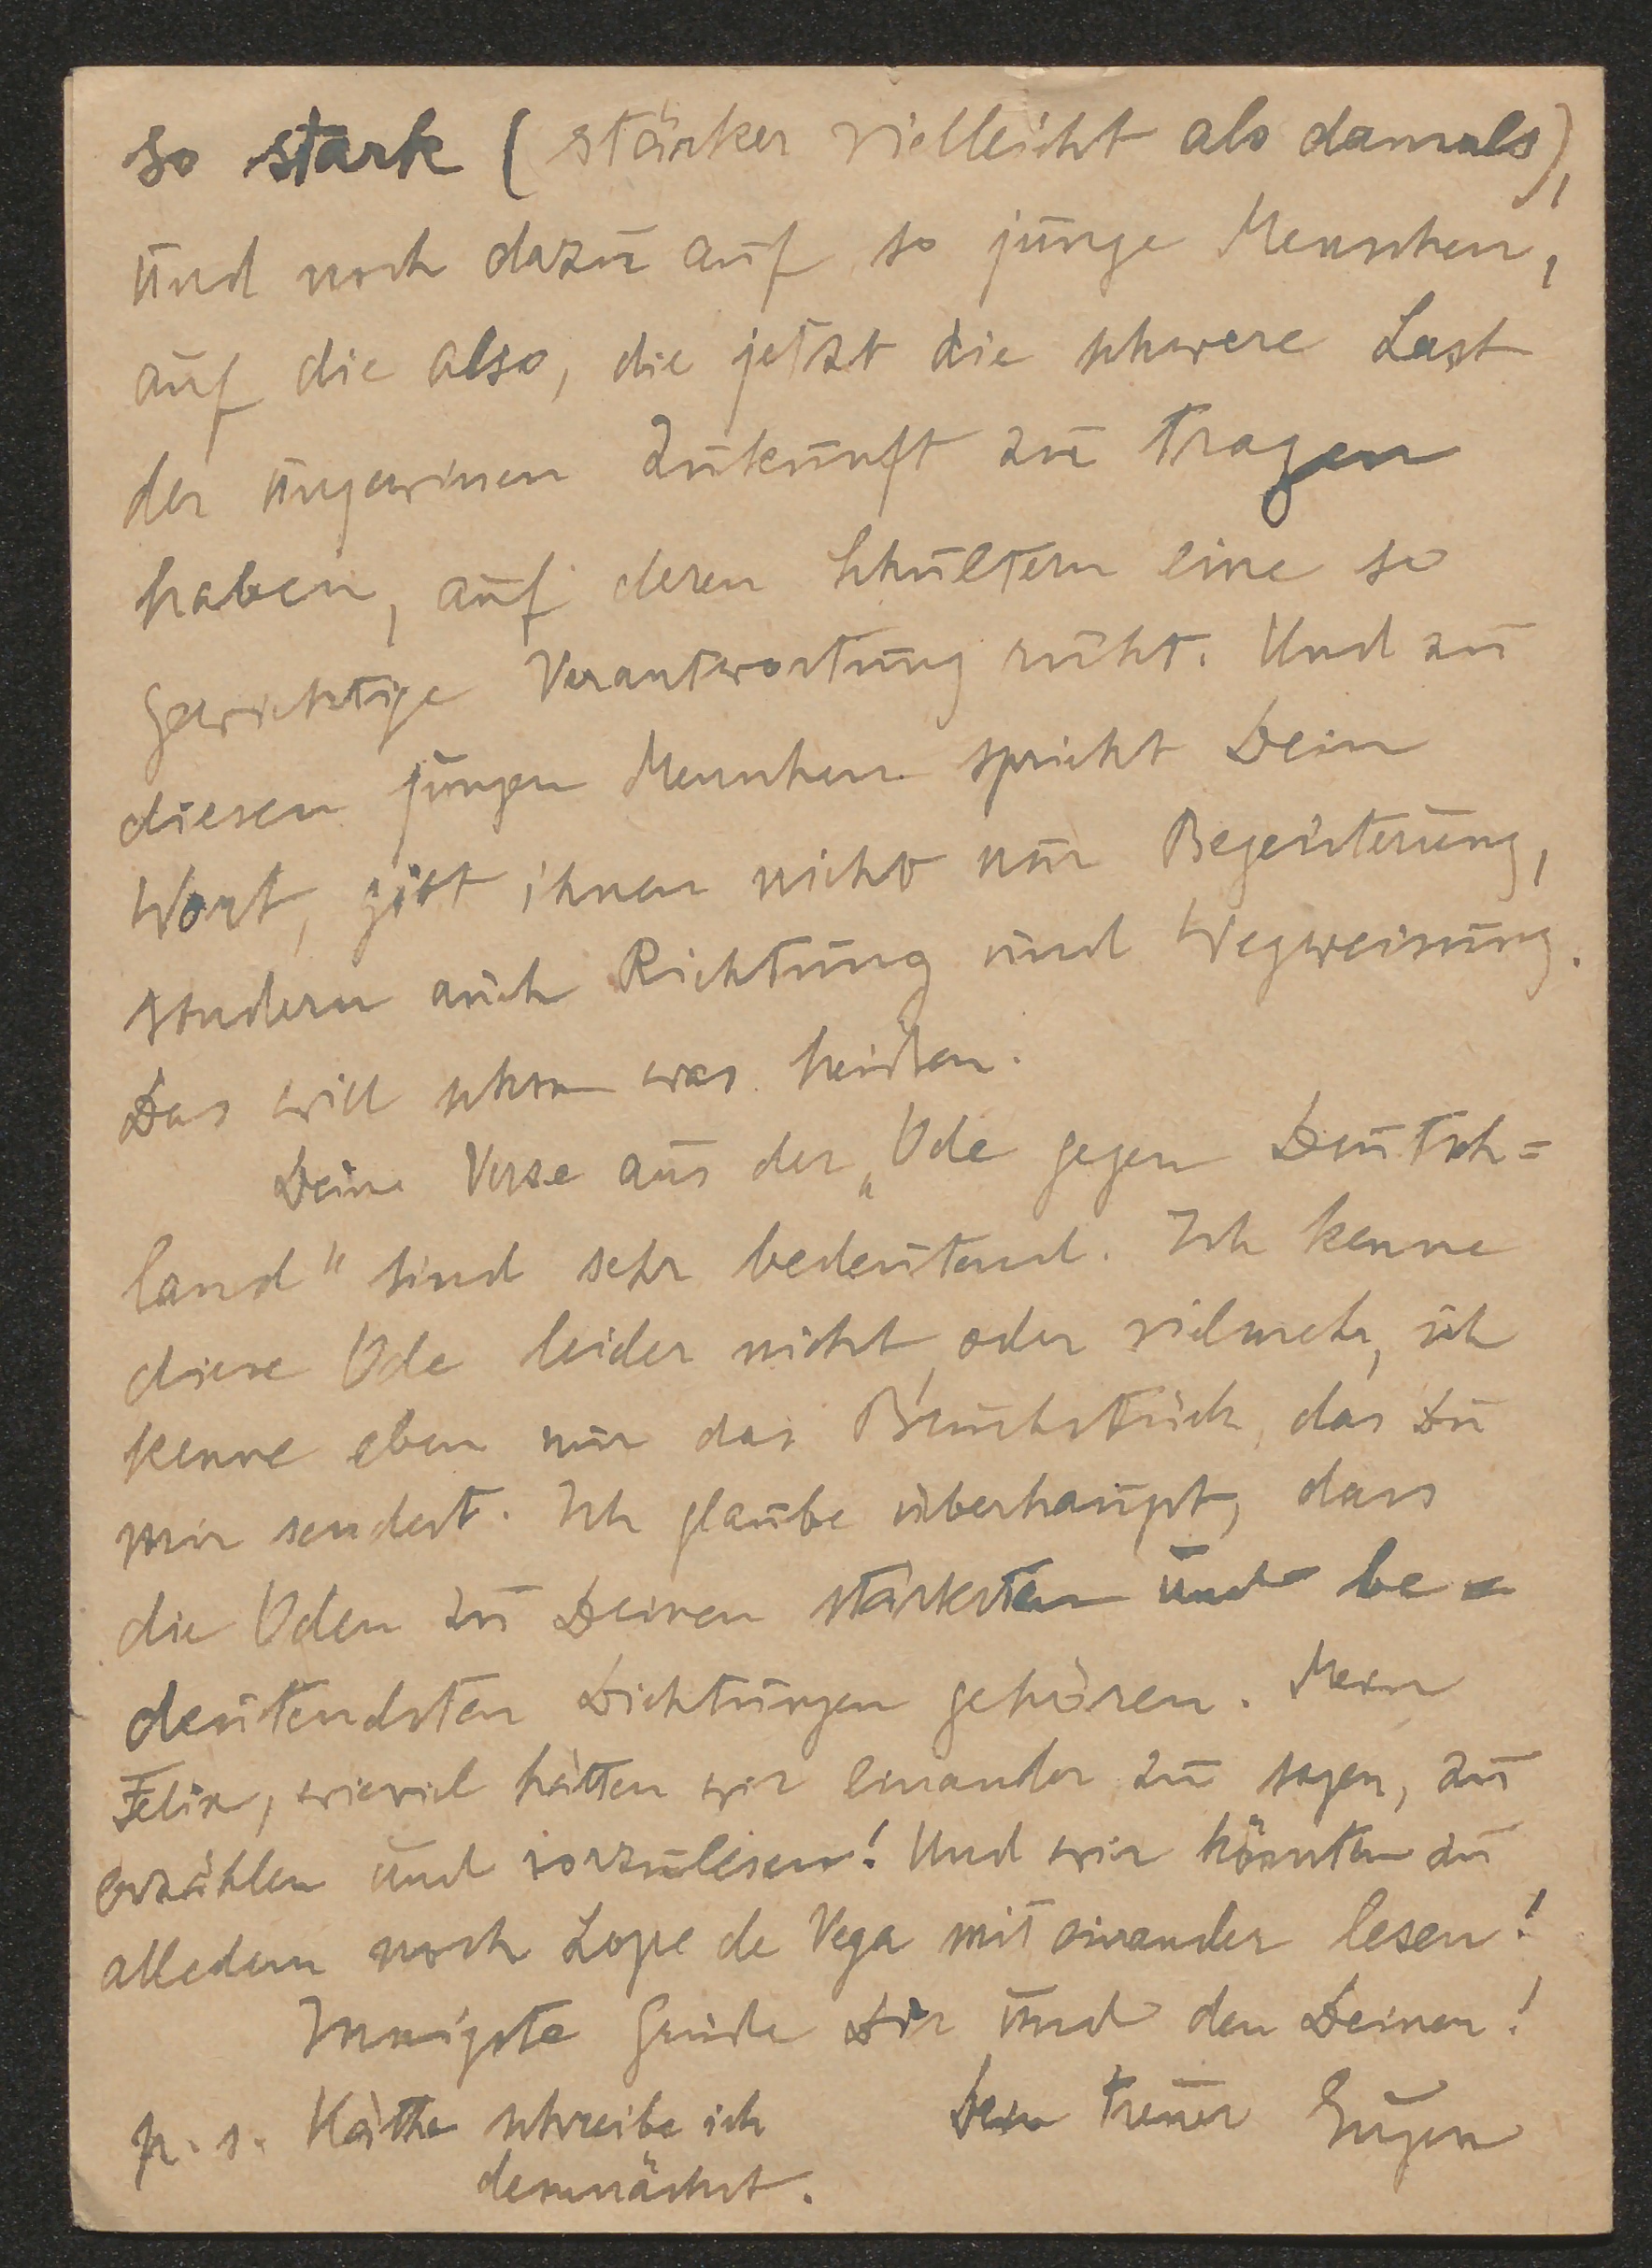 so stark (stärker vielleicht als damals),
und noch dazu auf so junge Menschen,
auf die also, die jetzt die schwere Last
der ungewissen Zukunft zu tragen
haben, auf deren Schultern eine so
gewichtige Verantwortung ruht. Und zu
diesen jungen Menschen spricht Dein
Wort, gibt ihnen nicht nur Begeisterung,
sondern auch Richtung und Wegweisung.
Das will schon was heißen.
Deine Verse aus der „Ode gegen Deutsch=
land" sind sehr bedeutend. Ich kenne
diese Ode leider nicht, oder vielmehr, ich
kenne eben nur das Bruchstück, das Du
mir sendest. Ich glaube überhaupt, dass
die Oden zu Deinen stärksten und be=
deutendsten Dichtungen gehören. Mein
Felix, wieviel hätten wir einander zu sagen, zu
erzählen und vorzulesen! Und wir könnten zu
alledem noch Lope de Vega mit einander lesen!
Innigste Grüße Dir und den Deinen!
Dein treuer Eugen
p. s. Käthe schreibe ich
demnächst.